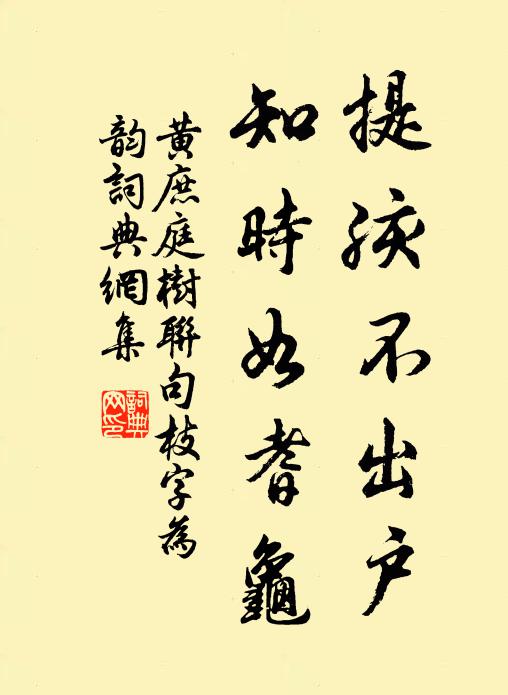 提孩不出户
知時如耆龜
黃庶庭樹聯句枝字為
韵詞典網集
詞典
网印